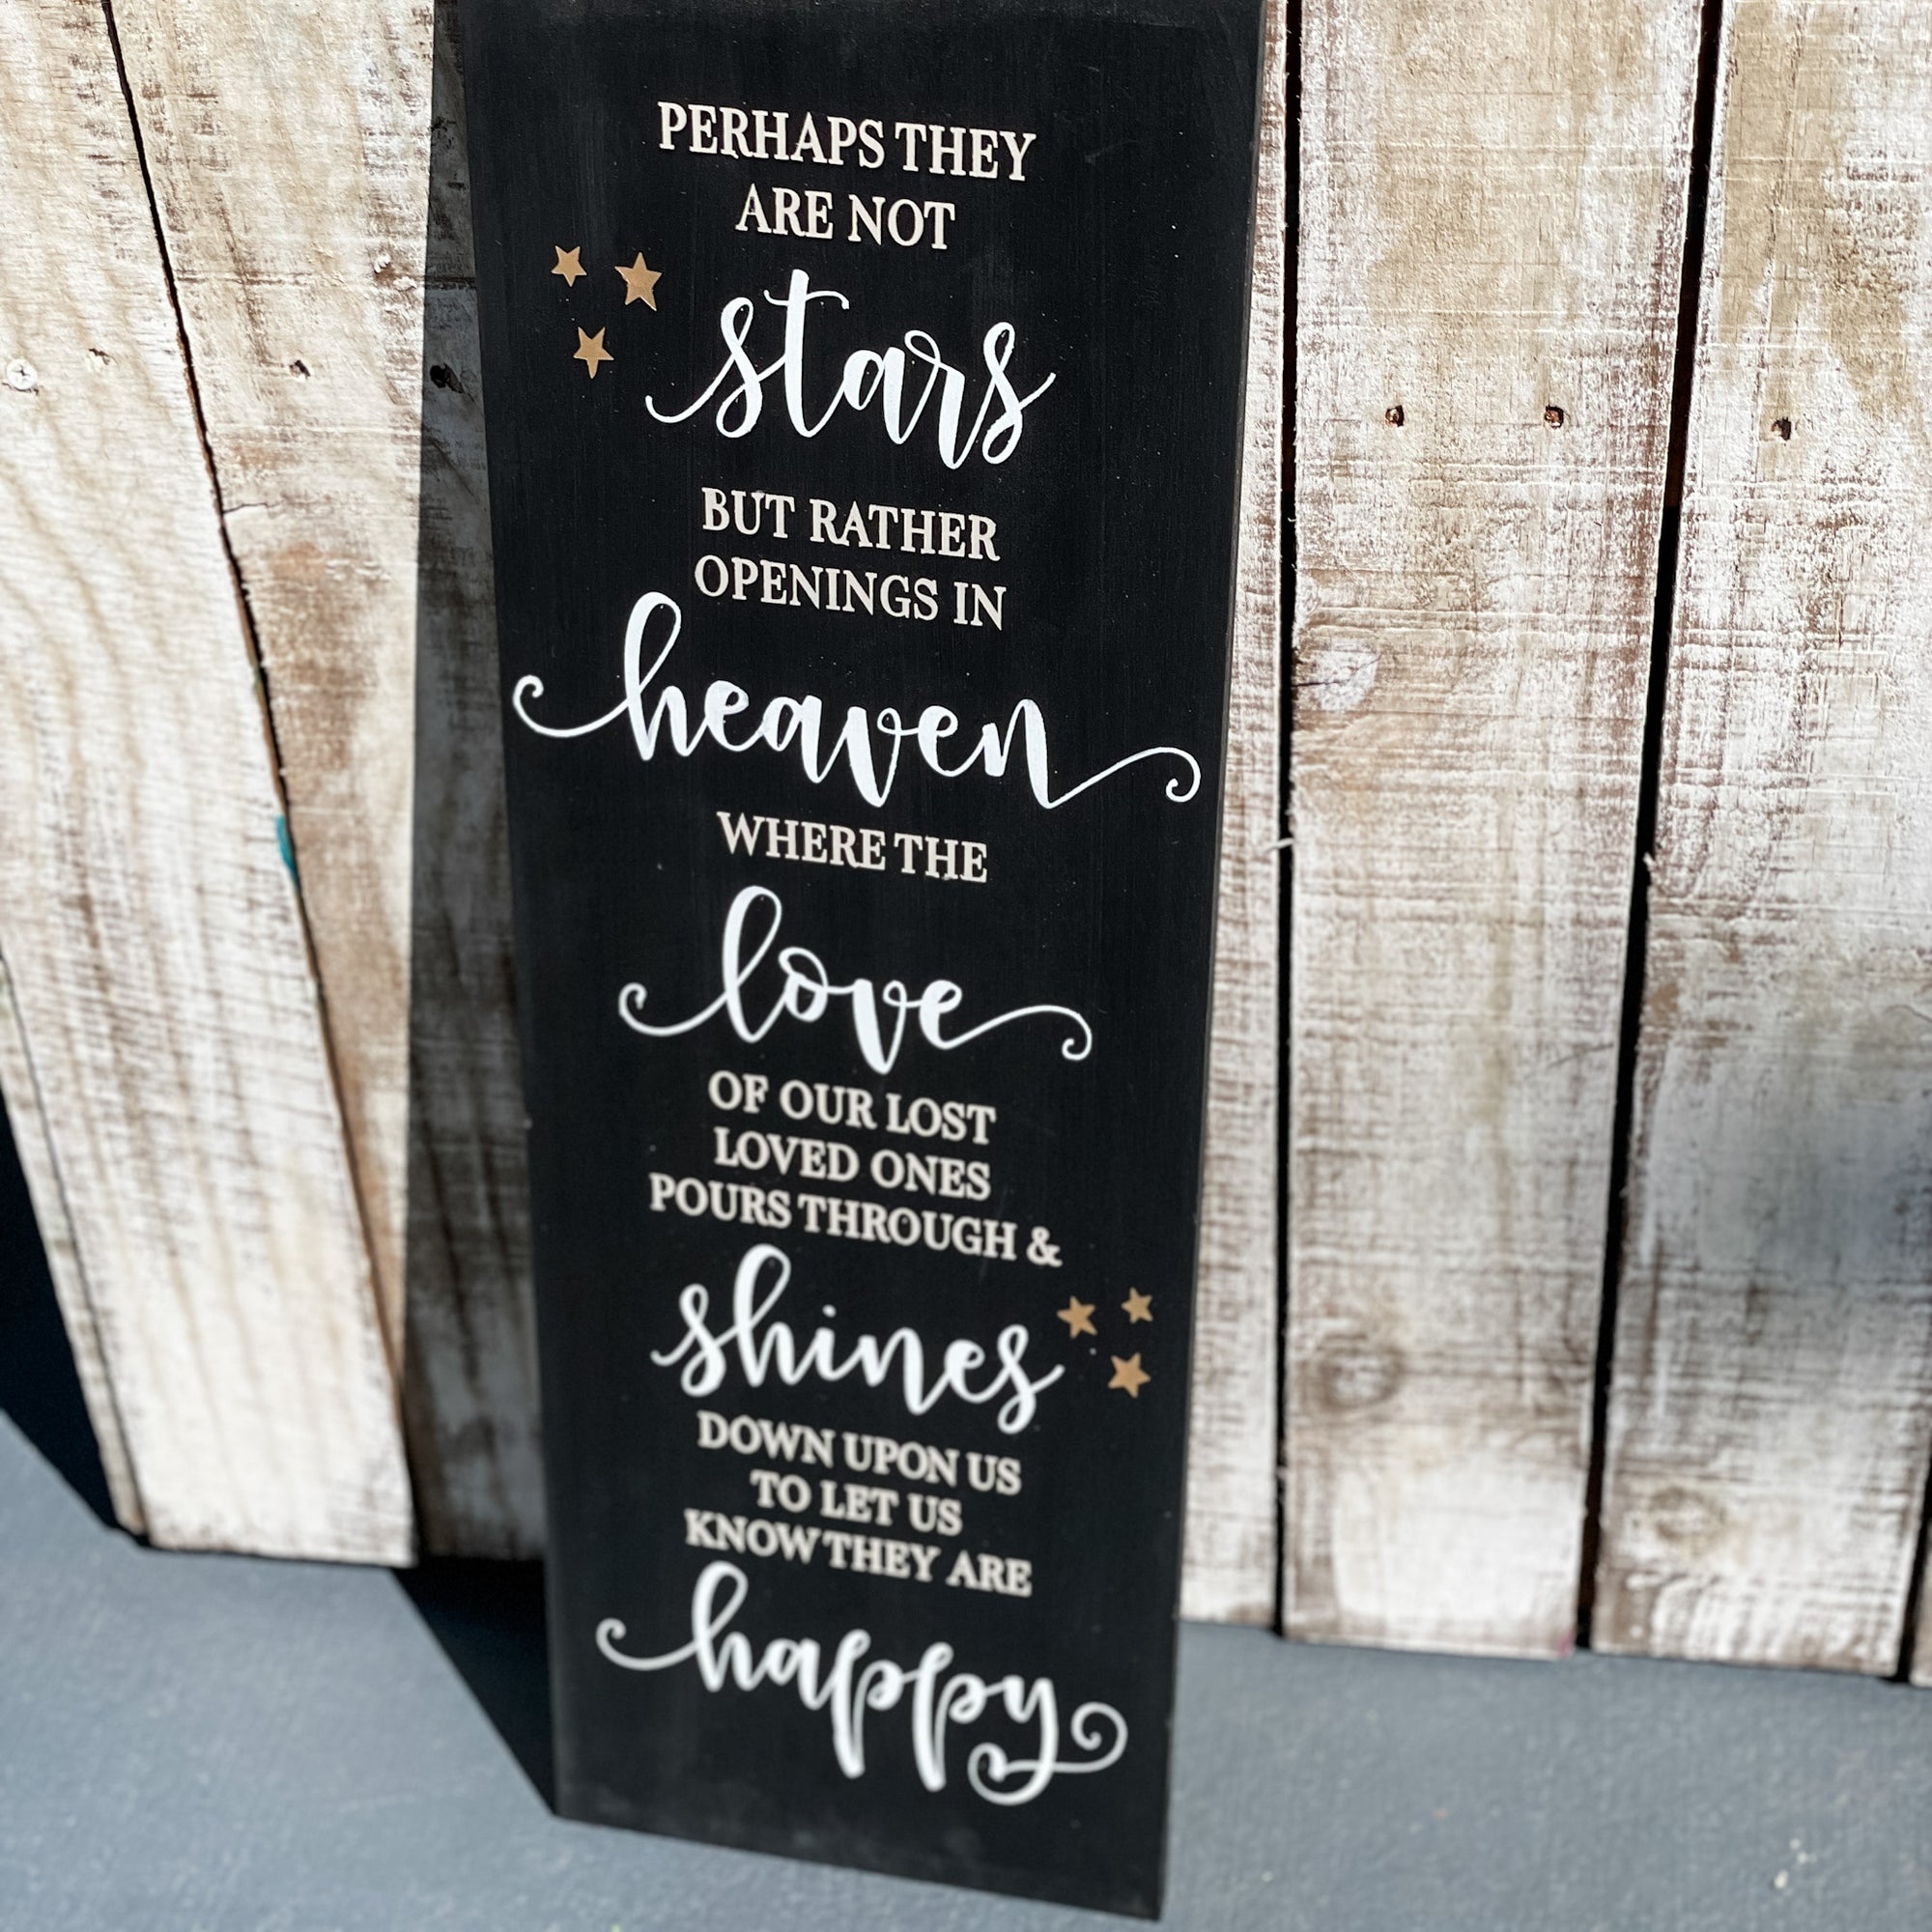 PERHAPS THEY
ARE NOT
stars
BUT RATHER
OPENINGS IN
heaven
WHERE THE
love
OF OUR LOST
LOVED ONES
POURS THROUGH &
shines
DOWN UPON US
TO LET US
KNOW THEY ARE
happy